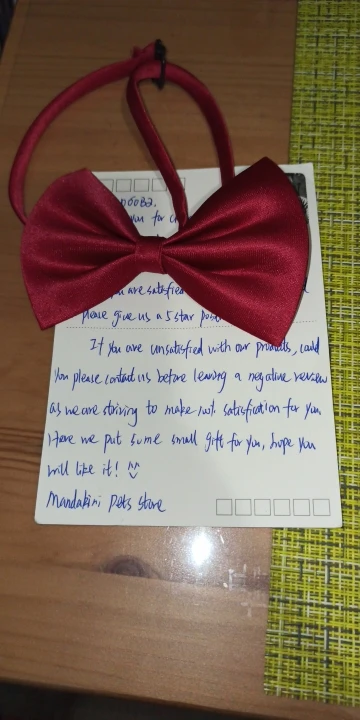 you for
you are satisfied
please give us a 5 star
If you are unsatisfied with our products, could
you please contact us before leaving a negative review
as we are striving to make satisfication for you
Here we put some small gift for you, hope you
will like it! ^^
Mandakini Pets Store